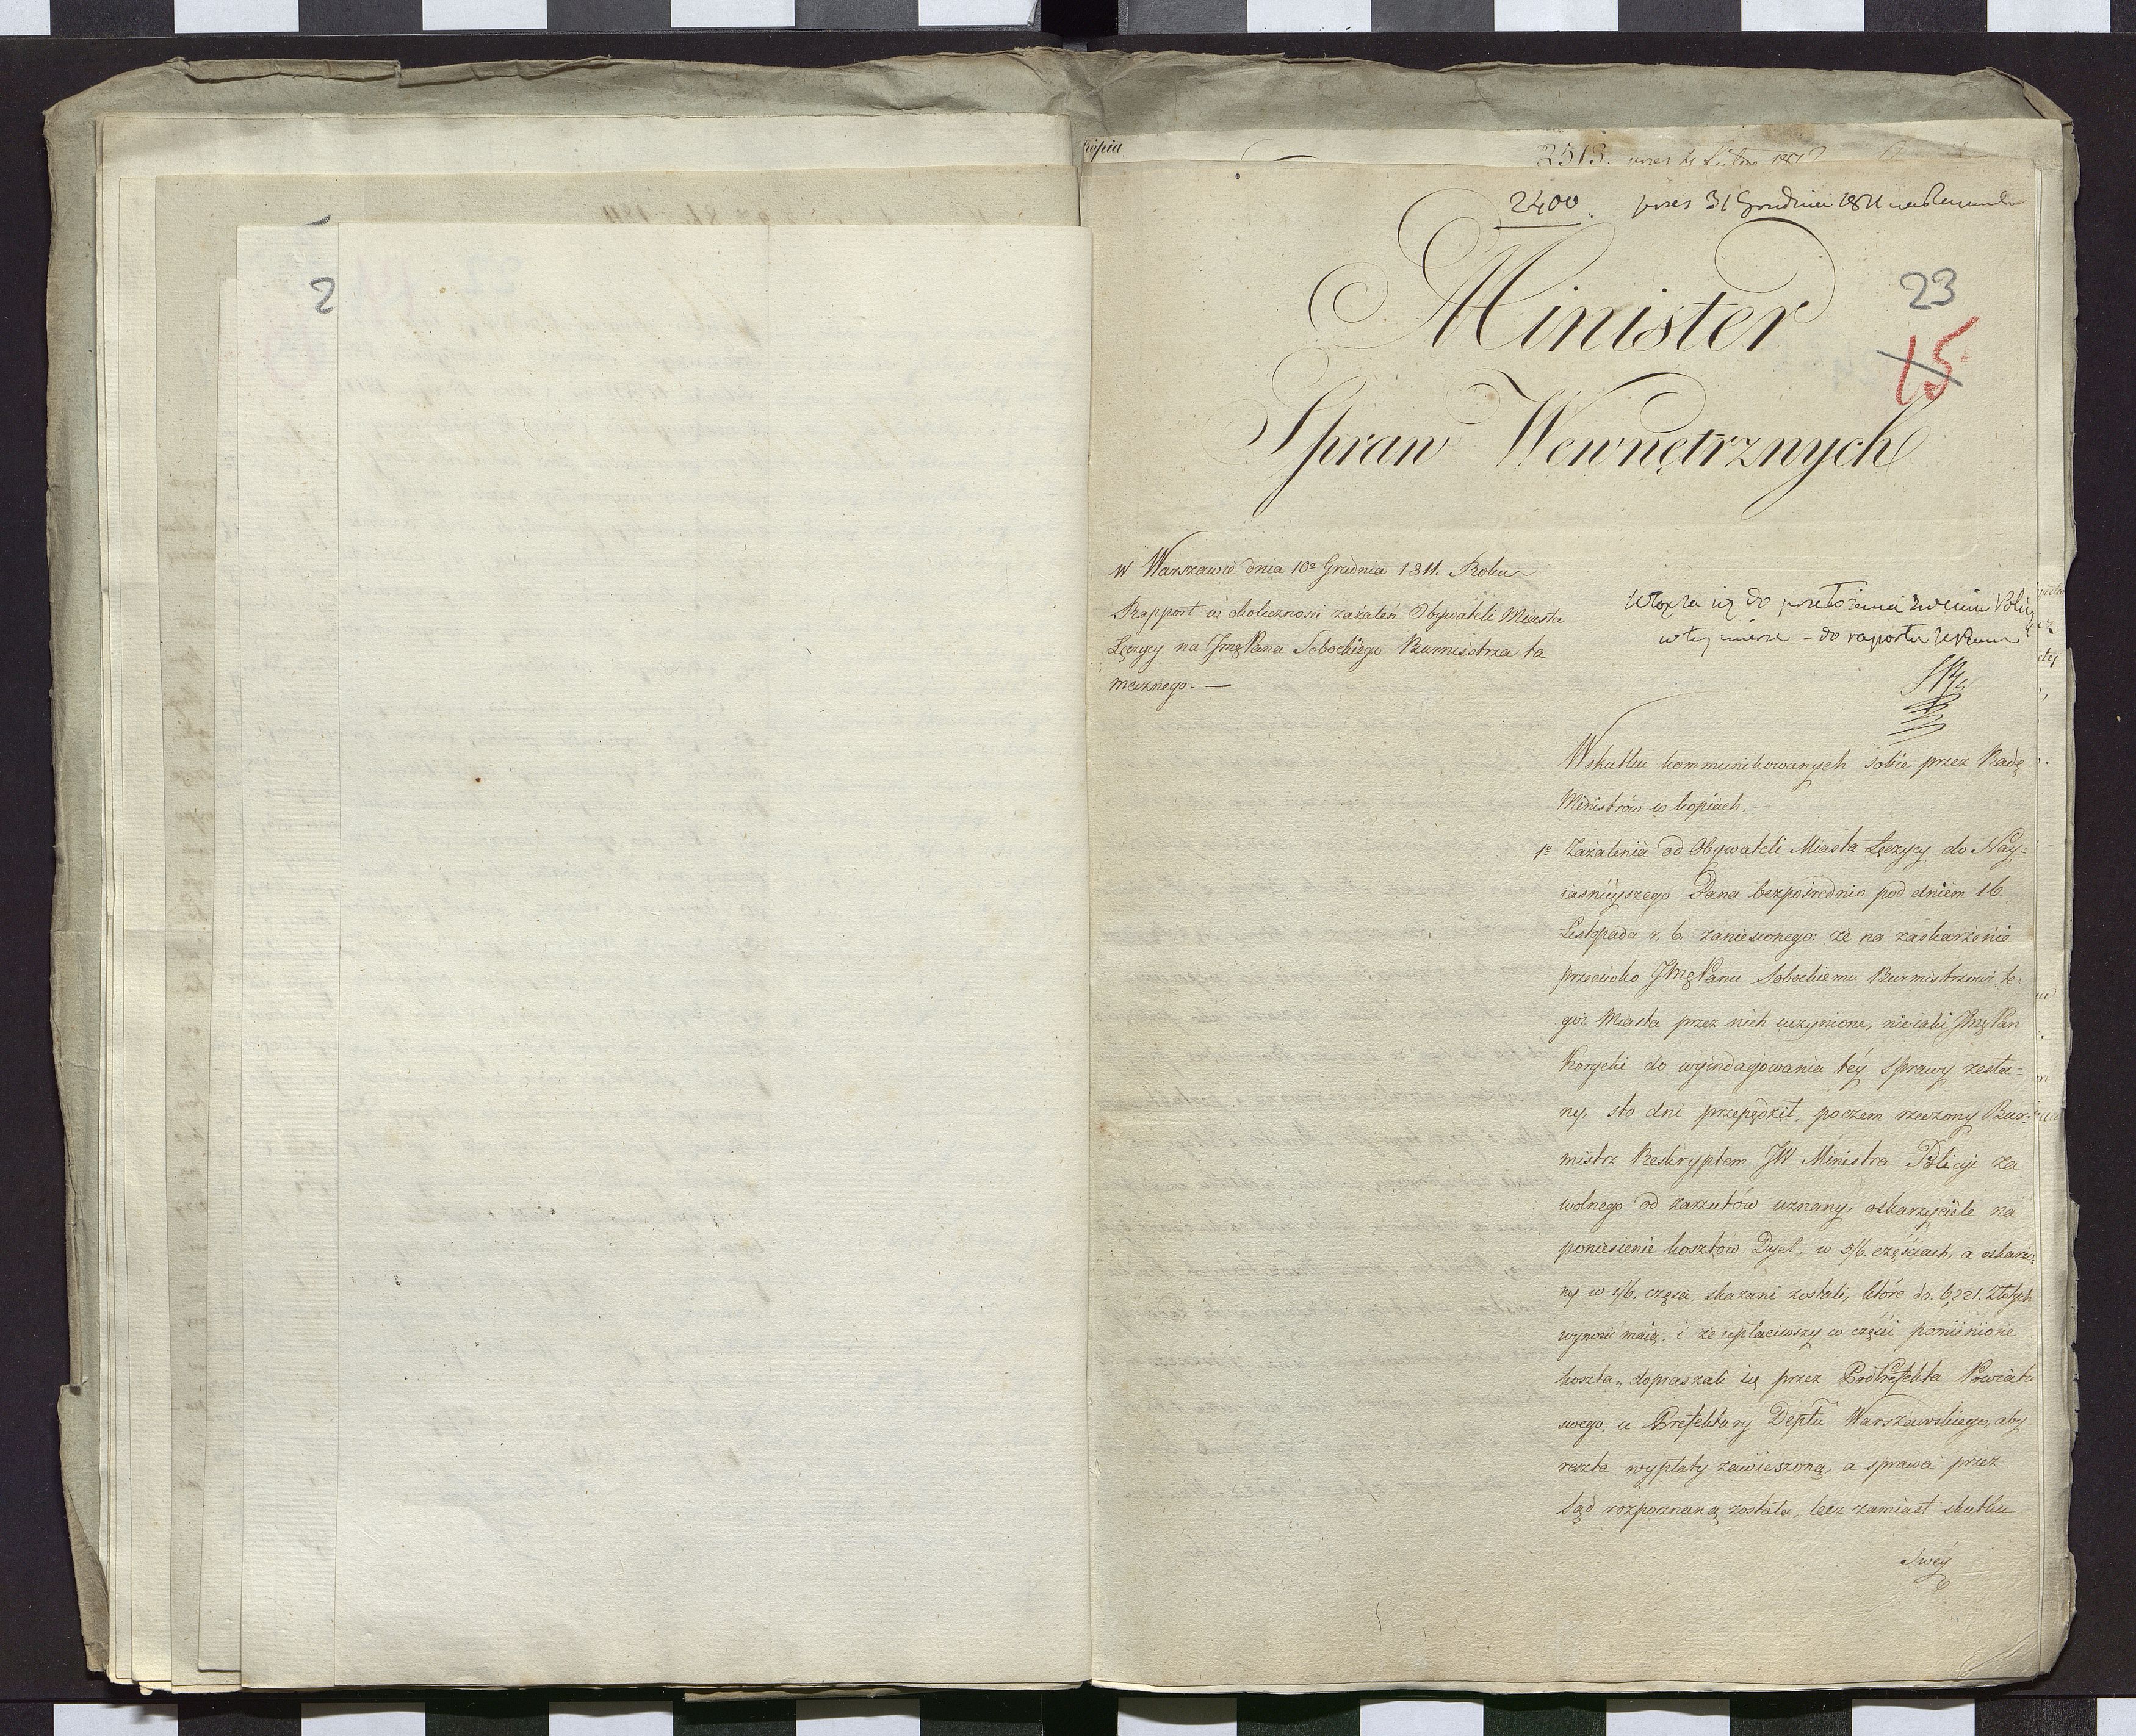 2
Kopia
2513.
2400. prses 31 Grudnia 1811
Minister
23
15
Spraw Wewnętrznych
w Warszawie dnia 10º Grudnia 1811. Roku
Rapport w okoliczności zażaleń Obywateli Miasta
Łęczycy na JmęPana Sobockiego Burmistrza ta
mecznego. —
do przełożenia
w tey mierze - do raportu
Wskutku kommunikowanych sobie przez Radę
Ministrów w kopiach.
1º Zażalenia od Obywateli Miasta Łęczycy do Nay=
iaśnieyszego Pana bezpośrednio pod dniem 16.
Listopada r. b. zaniesionego: że na zaskarżenie
przeciwko JmęPanu Sobockiemu Burmistrzowi te=
goż Miasta przez nich uczynione, nieiaki JmęPan
Korycki do wyindagowania téy sprawy zesła=
ny, sto dni przepędził, poczem rzeczony Bur=
mistrz Reskryptem JW Ministra Policyi za
wolnego od zarzutów uznany, oskarżyciele na
poniesienie kosztów Dyet, w 5/6. częściach, a oskarżo=
ny w 1/6. części, skazani zostali, które do. 6221. Złotych
wynosić maią, i że upłaciwszy w części pomienione
koszta, dopraszali się przez PodPrefekta Powiatu
swego, u Prefektury Deptu Warszawskiego, aby
reszta wypłaty zawieszoną, a sprawa przez
Sąd rozpoznaną została, lecz zamiast skutku
swéy